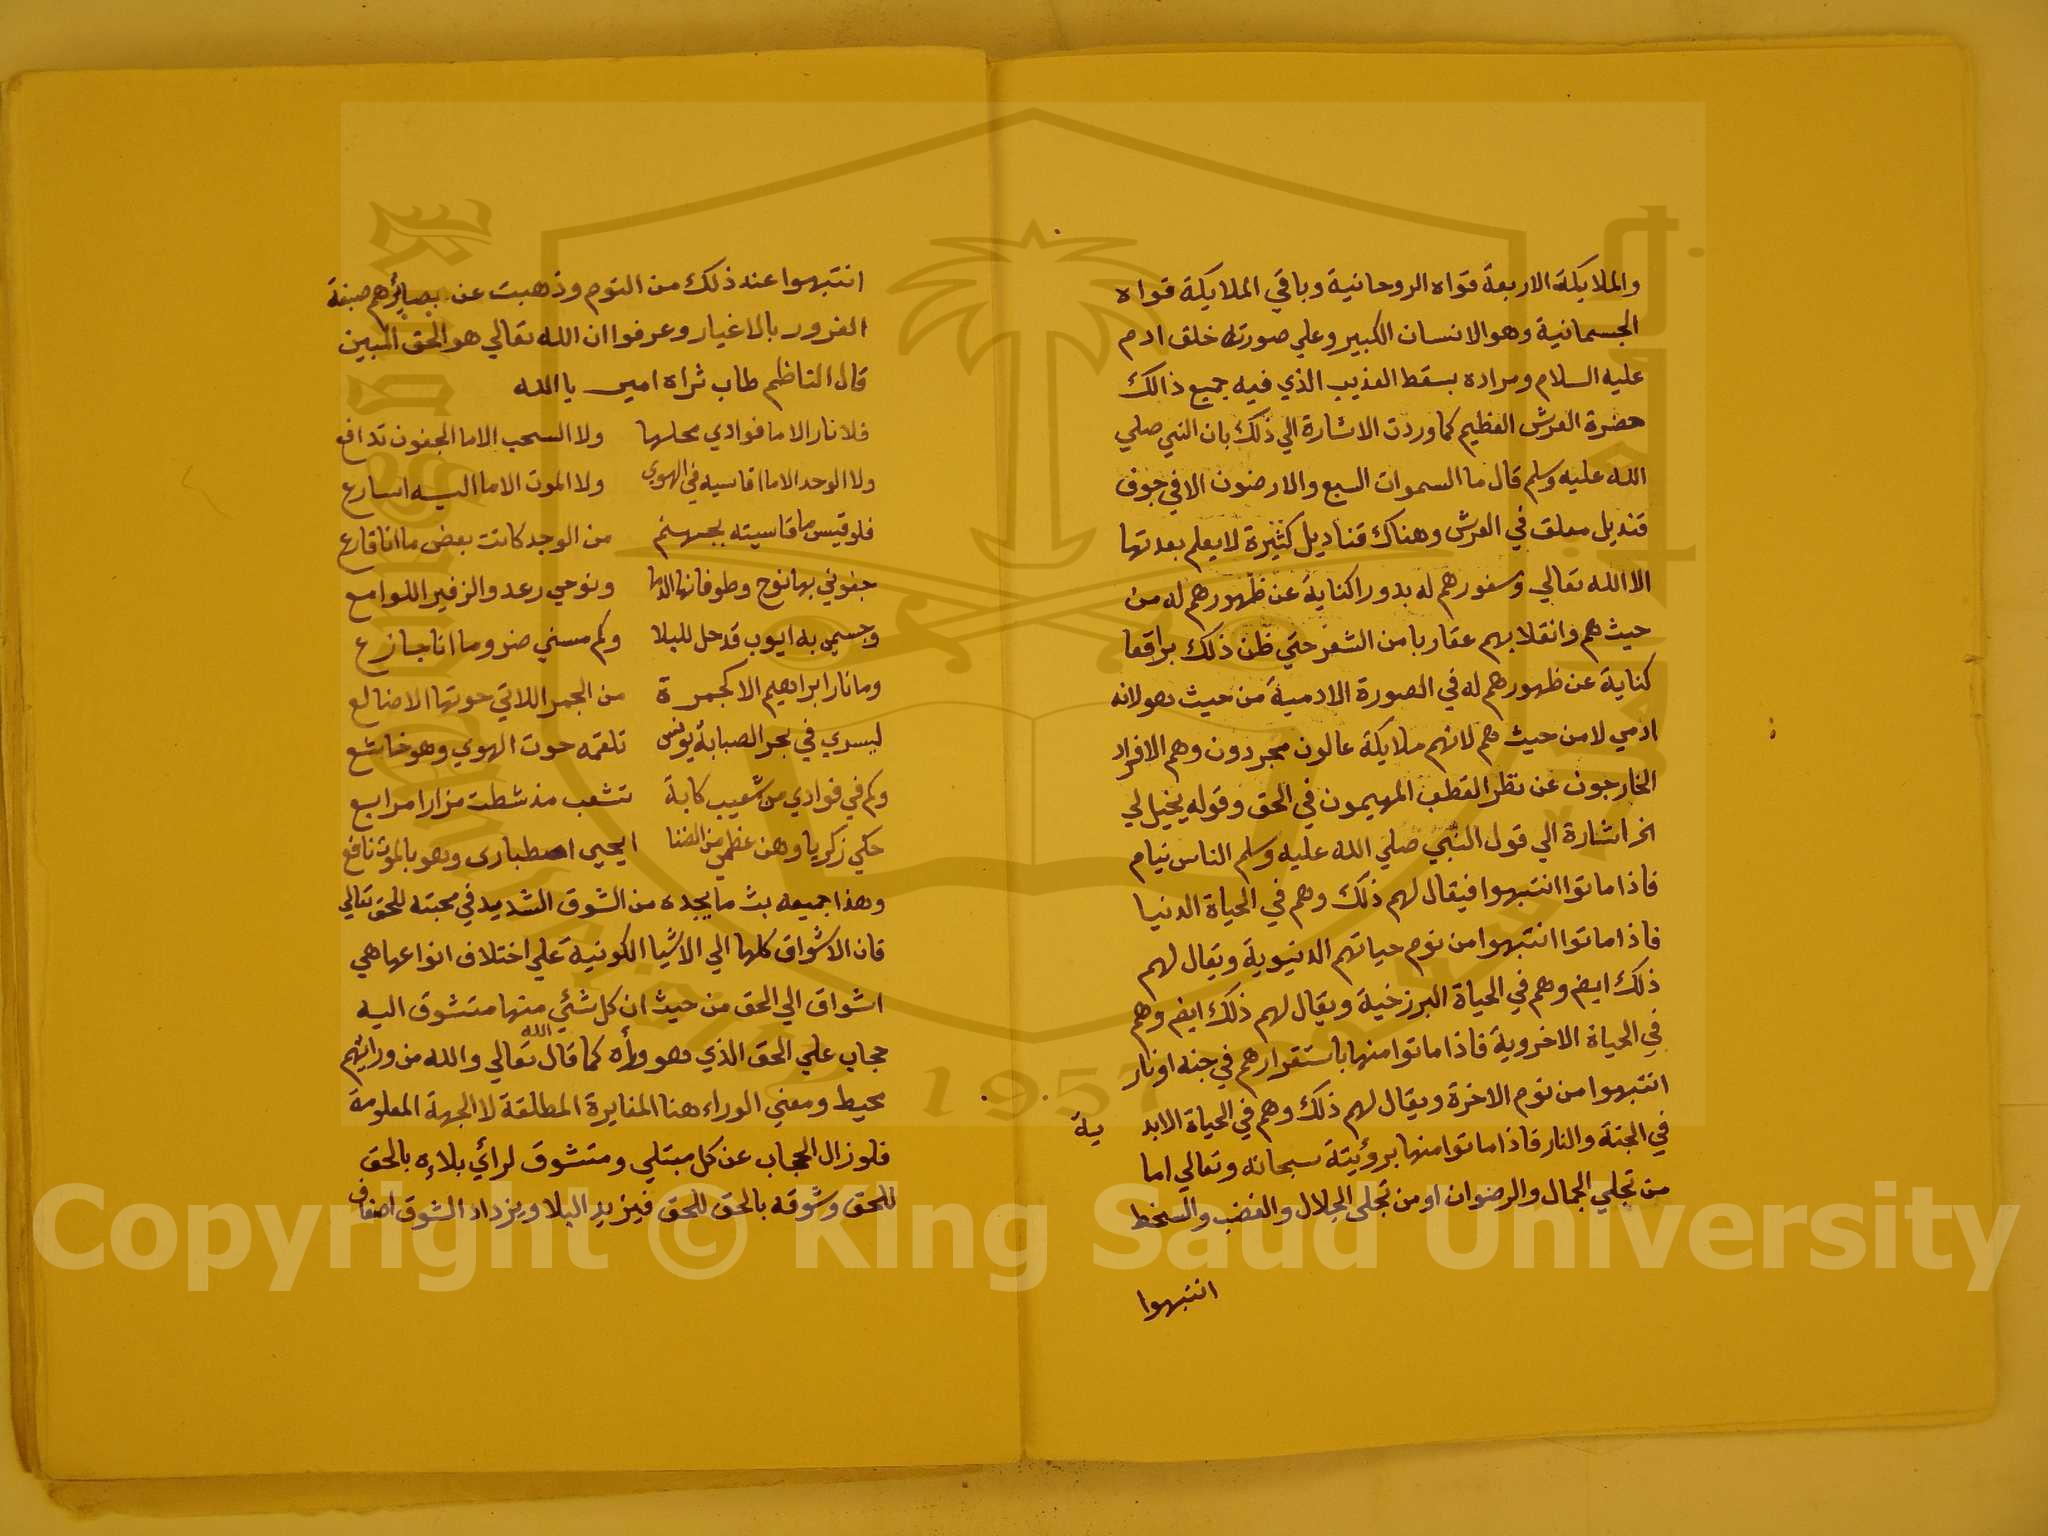 والملايكة الاربعة قواه الروحانية وباقي الملايكة قواه
الجسمانية وهو الانسان الكبير وعلي صورته خلق ادم
عليه السلام ومراده بسقط العذيب الذي فيه جميع ذالك
حضرة العرش العظيم كما وردت الاشارة الي ذلك بان النبي صلي
الله عليه وسلم قال ما السموات السبع والارضون الا في جوف
قنديل معلق في العرش وهناك قناديل كثيرة لا يعلم بعدتها
الا الله تعالي وسفورهم له بدورا كناية عن ظهورهم له من
حيث هم وانقلابهم عقاربا من الشعر حتي ظن ذلك براقعا
كناية عن ظهورهم له في الصورة الادمية من حيث هو لانه
ادمي لا من حيث هم لانهم ملايكة عالون مجردون وهم الافراد
الخارجون عن نظر القطب المهيمون في الحق وقوله يخيل لي
اخر اشارة الي قول النبي صلي الله عليه وسلم الناس نيام
فاذا ماتوا انتبهوا فيقال لهم ذلك وهم في الحياة الدنيا
فاذا ماتوا انتبهوا من نوم حياتهم الدنيوية ويقال لهم
ذلك ايضا وهم في الحياة البرزخية ويقال لهم ذلك ايضا وهم
في الحياة الاخروية فاذا ماتوا منها باستقرارهم في جنه او نار
انتبهوا من نوم الاخرة ويقال لهم ذلك وهم في الحياة الابدية
في الجنة والنار فاذا ماتوا منها برؤيته سبحانه وتعالي اما
من تجلي الجمال والرضوان او من تجلي الجلال والغضب والسخط
انتبهوا
انتبهوا عند ذلك من النوم وذهبت عن بصايرهم صبغة
الغرور بالاغيار وعرفوا ان الله تعالي هو الحق المبين
قال الناظم طاب ثراه امين يا الله
فلا نار الا ما فوادي محلها ولا السحب الا ما الجفون تدافع
ولا الوجد الا ما اقاسيه في الهوي ولا الموت الا ما اليه اسارع
فلو قيس ما قاسيته بجهنم من الوجد كانت بعض ما انا قارع
جفوني بها نوح وطوفانها الدما ونوحي رعد والزفير اللوامع
وجسمي به ايوب قد حل للبلا وكم مسني ضر وما انا جازع
وما نار ابراهيم الا كجمرة من الجمر اللاتي حوتها الاضالع
لسري في بحر الصبابة يونس تلقمه حوت الهوي وهو خاشع
وكم في فوادي من شعيب كابة تشعب مذ شطت مزارا مرابع
حكي زكريا وهن عظمي من الضنا ايحيي اصطباري وهو بالموت نافع
وهذا جميعه بث ما يجده من الشوق الشديد في محبته للحق تعالي
فان الاشواق كلها الي الاشيا الكونية علي اختلاف انواعها هي
اشواق الي الحق من حيث ان كل شئي منها متشوق اليه
حجاب علي الحق الذي هو وراه كما قال الله تعالي والله من ورائهم
محيط ومعني الوراء هنا المغايرة المطلقة لا الجهة المعلومة
فلو زال الحجاب عن كل مبتلي ومتشوق لرأي بلاءه بالحق
للحق وشوقه بالحق للحق فيزيد البلا ويزداد الشوق اضعاف
Copyright © King Saud University
1957